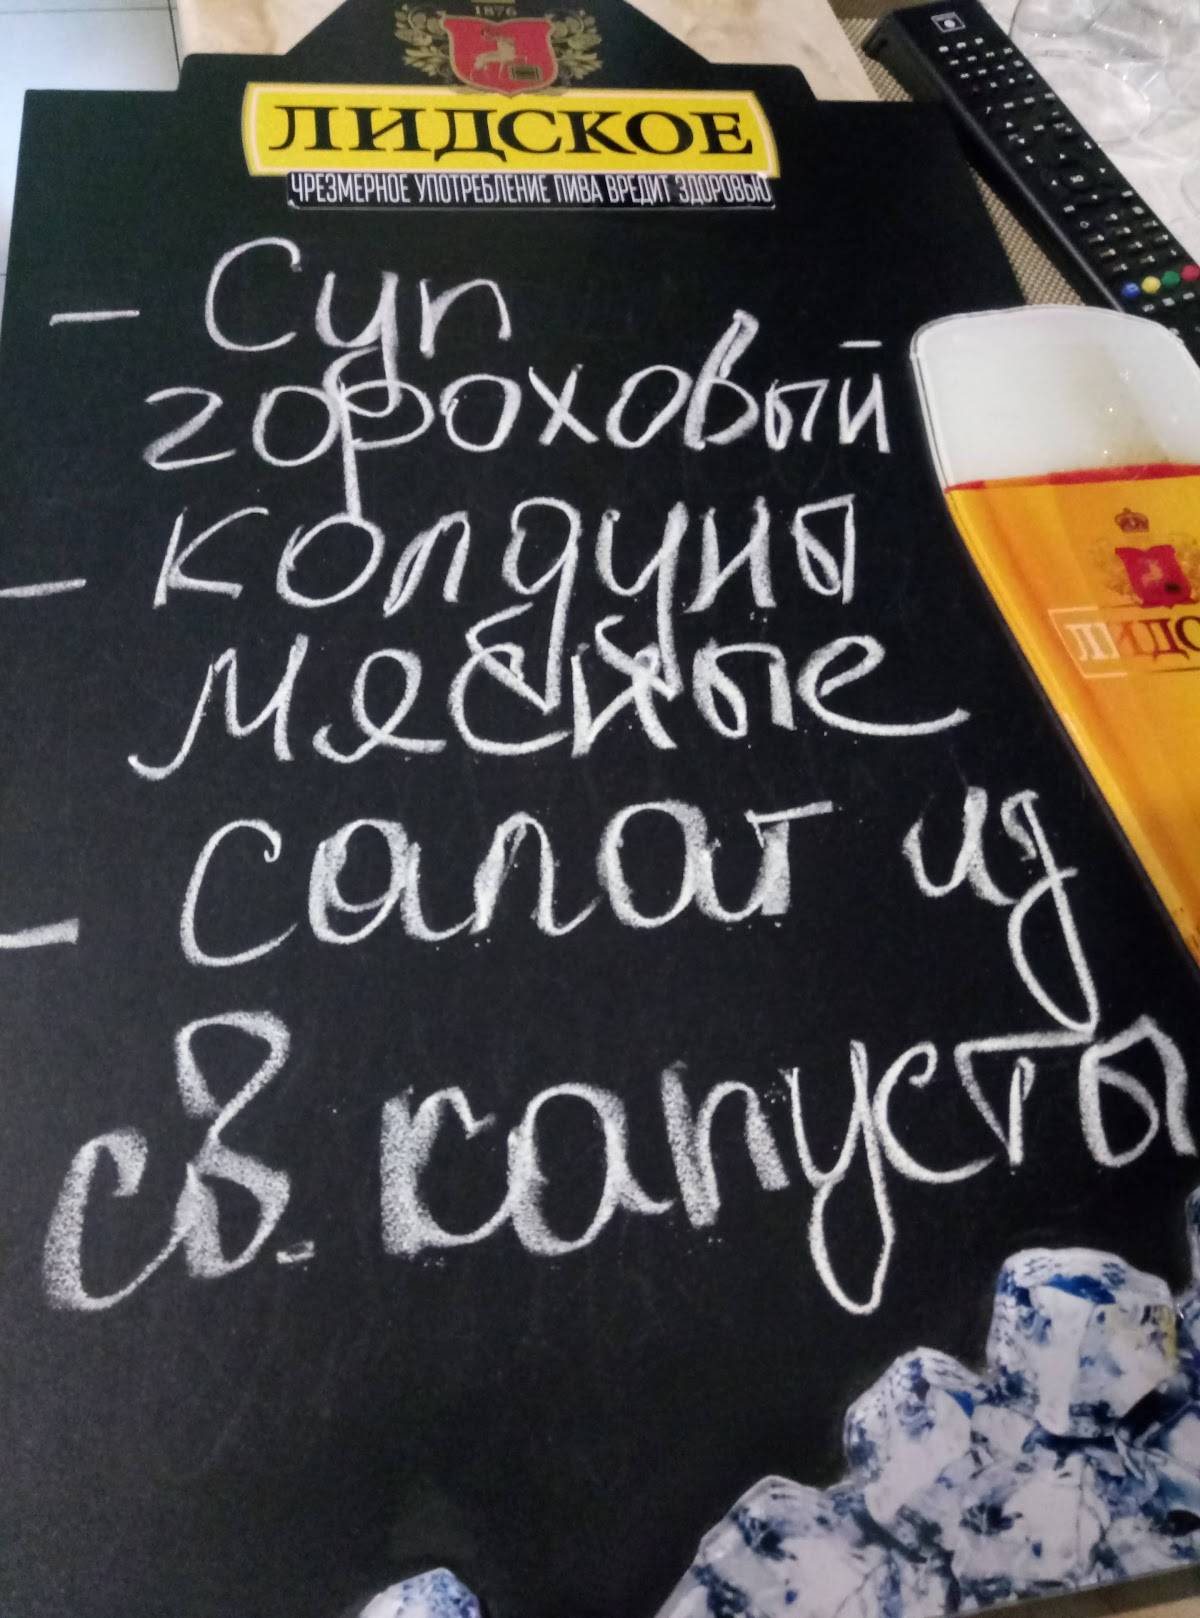 1876
ЛИДСКОЕ
ЧРЕЗМЕРНОЕ УПОТРЕБЛЕНИЕ ПИВА ВРЕДИТ ЗДОРОВЬЮ
- Суп
гороховый
- колдуны
мясные
- салат из
св. капусты
ЛИДС